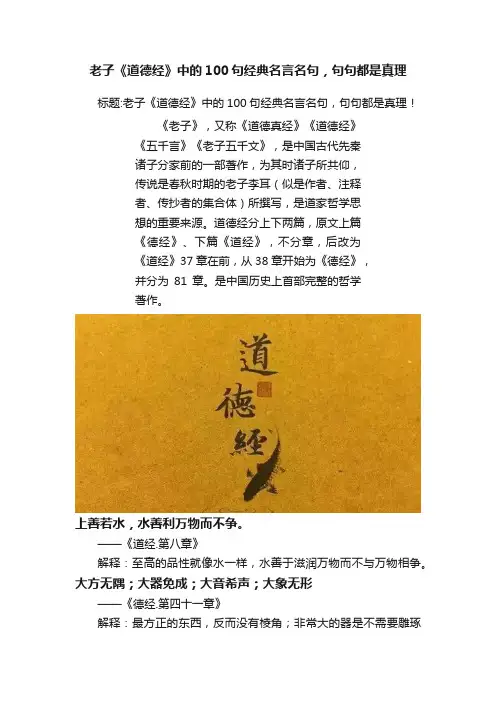 老子《道德经》中的100句经典名言名句，句句都是真理
标题:老子《道德经》中的100句经典名言名句，句句都是真理！
《老子》，又称《道德真经》《道德经》
《五千言》《老子五千文》，是中国古代先秦
诸子分家前的一部著作，为其时诸子所共仰，
传说是春秋时期的老子李耳（似是作者、注释
者、传抄者的集合体）所撰写，是道家哲学思
想的重要来源。道德经分上下两篇，原文上篇
《德经》、下篇《道经》，不分章，后改为
《道经》37章在前，从38章开始为《德经》，
并分为81章。是中国历史上首部完整的哲学
著作。
道
德
經
上善若水，水善利万物而不争。
——《道经.第八章》
解释：至高的品性就像水一样，水善于滋润万物而不与万物相争。
大方无隅；大器免成；大音希声；大象无形
——《德经.第四十一章》
解释：最方正的东西，反而没有棱角；非常大的器是不需要雕琢